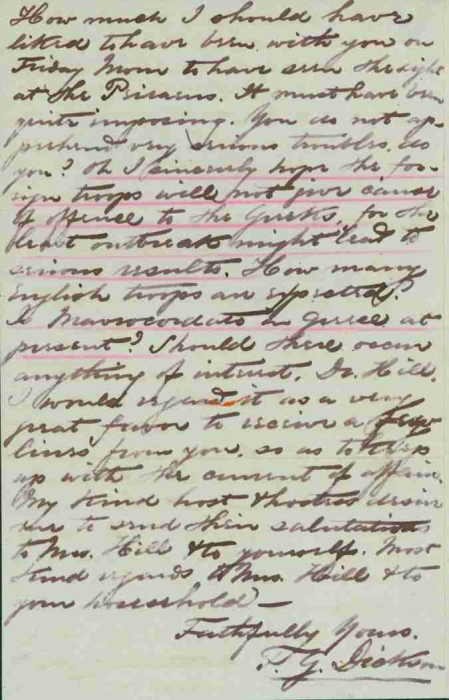 How much I should have
liked to have been with you on
Friday Morn to have seen the sight
at the Piraeus. It must have been
quite imposing. You do not ap-
prehend very serious troubles, do
you? Oh I sincerely hope the for-
eign troops will not give cause
of offence to the Greeks, for the
least outbreak might lead to
serious results. How many
English troops are expected?
Is Mavrocordato in Greece at
present? Should there occur
anything of interest, Dr. Hill,
I would regard it as a very
great favor to receive a few
lines from you, so as to keep
up with the current of affairs.
My kind host & hostess desire
me to send their salutations
to Mrs. Hill & to yourself. Most
kind regards to Mrs. Hill & to
your household —
Faithfully Yours.
T. G. Dickson